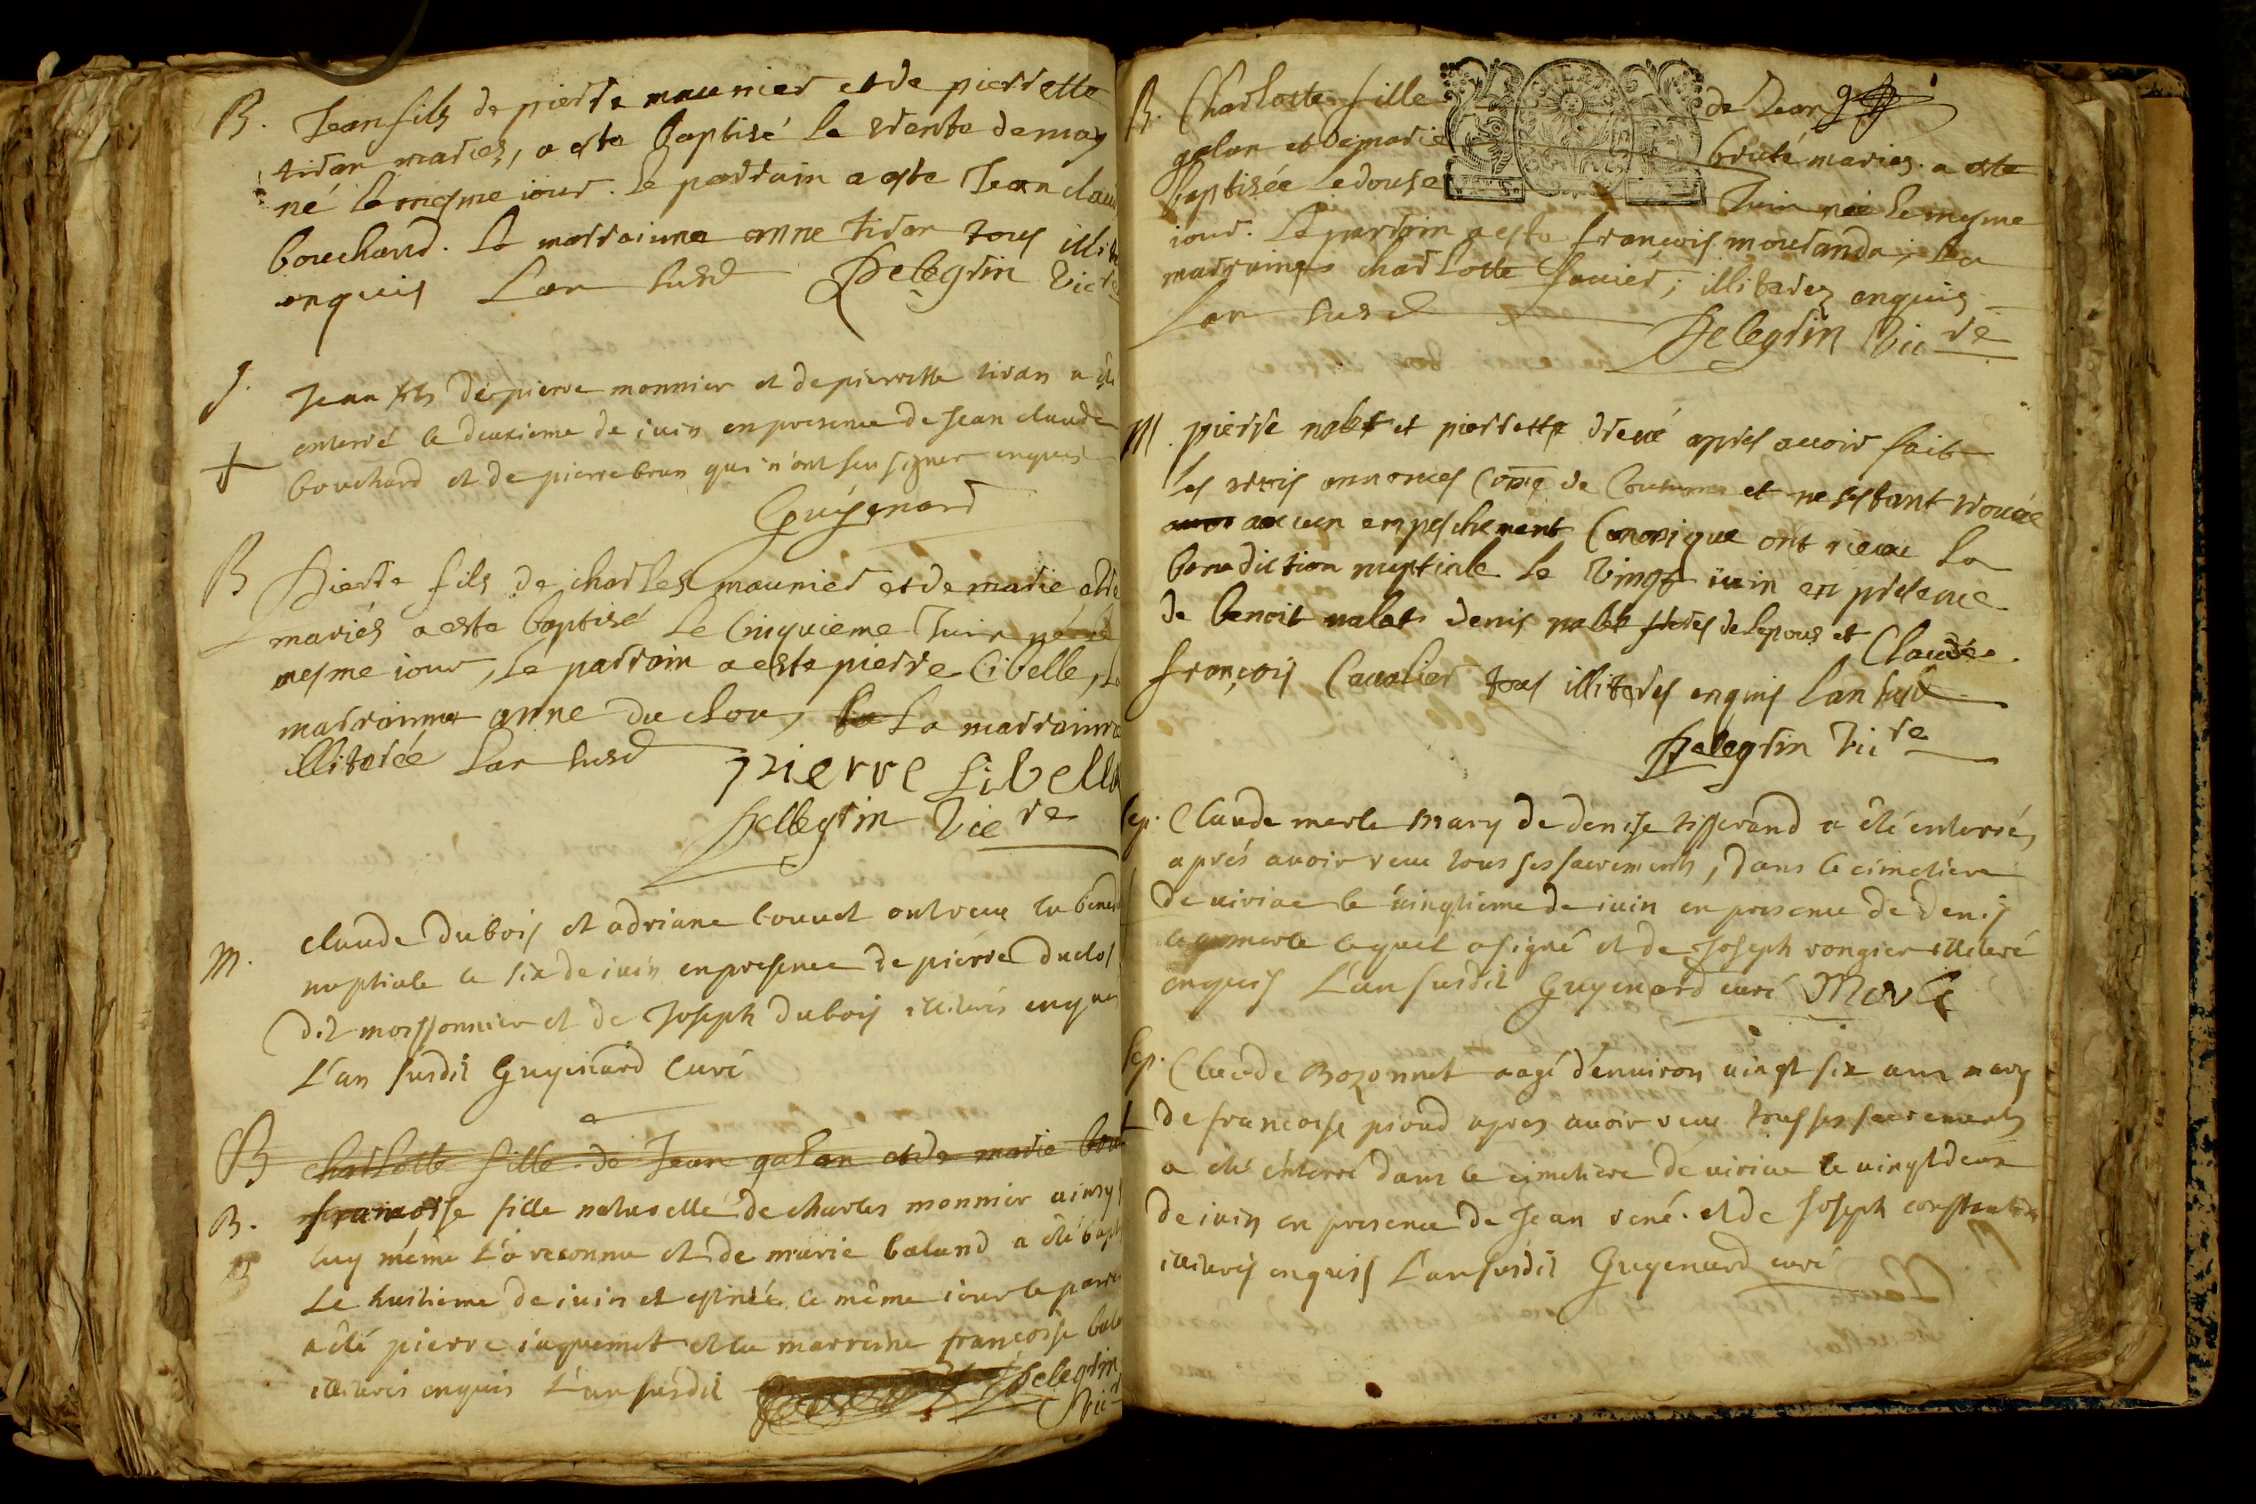 B. Jean fils de pierre maunier et de pierrette
tiran mariez, a este baptisé le trente de may
né le mesme iour. le parrain a este Jean clau
bouchard. la marrainne anne tiran tous illit
enquis L'an susd Pelegrin Vicre
J. Jean fils de pierre monnier et de pierrette tiran a été
enterré le deuxieme de iuin en presence de Jean claude
bouchard et de pierre brun qui n'ont sceu signer enquis
Guyenard
B Pierre fils de charles maunier et de marie
mariés a este baptisé le Cinquieme Juin né le
mesme iour, le parrain a este pierre Libelle, la
marrainne anne du clou, la la marrainne
illiterée L'an susd pierre Libelle
Pellegrin Vicre
M. claude Dubois et adriane Couuet ont receu la bened
nuptiale le six de iuin en presence de pierre Duclos
dit moissonnier et de Joseph Dubois illiterés enquis
L'an susdit Guyenard Curé
B charlotte fille de Jean galan et de marie
B. francoise fille naturelle de charles monnier ainsy
luy même l'a reconnu et de marie baland a été bapt
Le huitieme de iuin et est née le même iour le parr
a été pierre iaquemet et la marreine francoise bala
illiterés enquis L'an susdit Pelegrin
Vic
B. Charlotte fille de Jean
galan et de marie bruté mariez. a este
baptisée le douse Juin née le mesme
iour. Le parrain a este françois mourande; la
marraine charlotte Janier; illiterez enquis
L'an susd Pelegrin Vicre
M. pierre nalet et pierrette dreué apres auoir fait
les trois annonces Come de Coutume et ne s'estant trouué
aucun empeschement Canonique ont receu la
benediction nuptiale le Vingt iuin en presence
de benoit nalet denis nalet freres de lepoux et Claude
françois Caualier tous illiterés enquis L'an susd
Pelegrin Vicre
Sep. Claude merle mary de denise tisserand a été enterré,
aprés auoir receu tous ses sacrements, dans le cimetiere
de uiriac le uingtieme de iuin en presence de denis
merle lequel a signé et de Joseph rongier illiteré
enquis L'an susdit Guyenard curé Merle
Sep. Claude Bozonnet aagé d'enuiron uingt six ans mary
de francoise piroud apres auoir receu tous ses sacrements
a été enterré dans le cimetiere de uiriac le uingt deux
de iuin en presence de Jean rené. et de Joseph constantin
illiterés enquis L'an susdit Guyenard curé